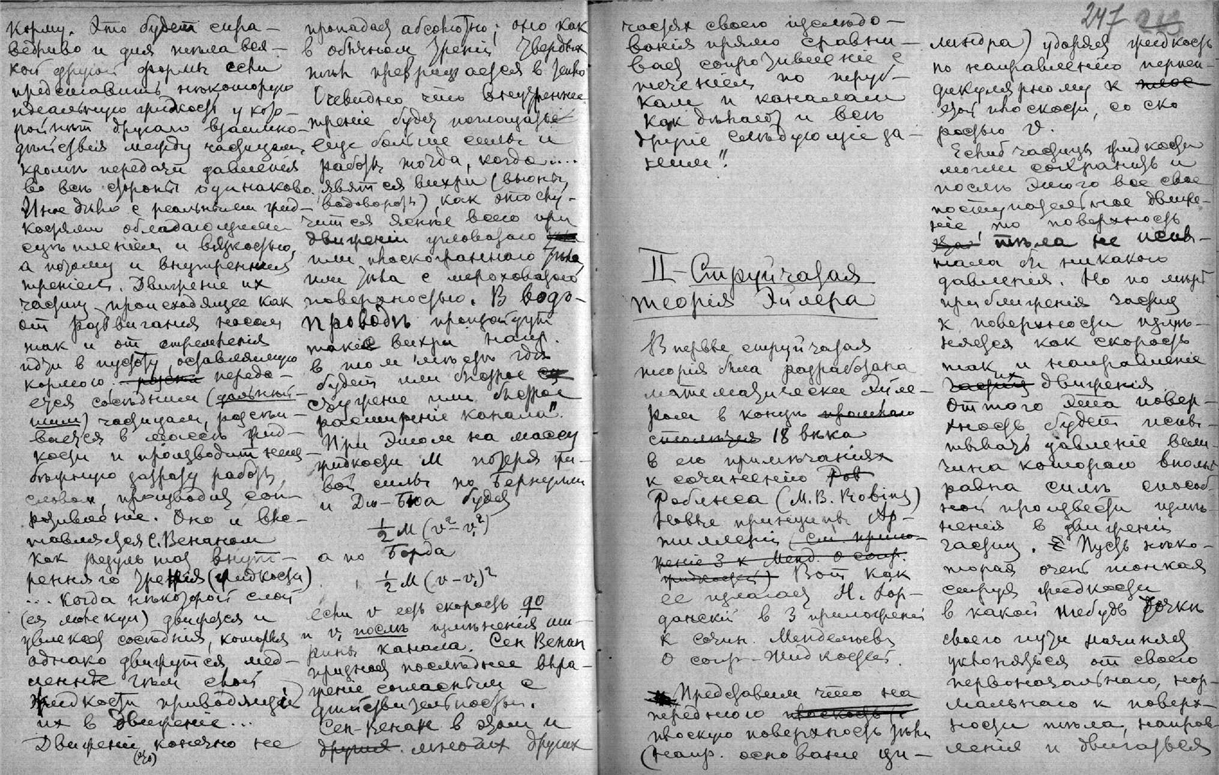 корму. Это будетъ спра-
ведливо и для тѣла вся-
кой другой формы если
представить нѣкоторую
идеальную жидкость у кото-
рой нѣтъ другаго взаимно-
дѣйствія между частицами,
кромѣ передачи давленія
во всѣ стороны одинаково.
Иное дѣло с реальными жид-
костями обладающими
сцѣпленіем и вязкостью,
а потому и внутреннимъ
треніем. Движеніе их
частиц, происходящее как
от раздвиганія носом
так и от стремленія
идти в пустоту, оставляемую
кормою переда-
ется сосѣдним (дальнѣй-
шим) частицам, разсѣи-
вается в массѣ жид-
кости и производит
затрату работы,
словом, производя соп-
ротивление. Оно и
С. Венаном
как результат внут-
ренняго тренія (жидкости)
... когда нѣкоторый слой
(ея молекул) движутся и
увлекая сосѣдния, которыя
однако движутся мед-
леннѣе, чѣм слой
жидкости приводящій
их в движеніе...
Движеніе конечно не
(это)
пропадая абсолютно; оно как
в обычном треніи твердых
тѣл превращается в тепло
Очевидно что внутреннее
треніе будет поглощать
еще больше силы и
работы тогда, когда ...
явятся вихри (вьюны,
водовороты), как это слу-
чится яснѣе всего при
движеніи угловатаго
или плоскограннаго тѣла
или тѣла с шероховатою
поверхностью. В водо-
проводѣ произойдут
такіе вихри напр.
в том мѣстѣ гдѣ
будет или быстрое
съуженіе или быстрое
расширеніе канала".
При этом на массу
жидкости M потеря жи-
вой силы по Бернулли
и Дю-Бюа будет
½ M (v² - v₁²)
а по Борда
½ M (v - v₁)²
если v есть скорость до
и v₁ послѣ измѣненія ши-
рины канала. Сен Венан
признает послѣднее выра-
женіе согласным с
дѣйствительностью.
Сен-Венан в этом и
другия многих других
частях своего изслѣдо-
ванія прямо сравни-
вает сопротивленіе с
теченіем по труб-
кам и каналам
как дѣлают и всѣ
другіе слѣдующіе за-
ними".
II - Струйчатая
теорія Эйлера
Впервые струйчатая
теорія была разработана
математически Эйле-
ром в концѣ прошлаго
столѣтія 18 вѣка
в его примѣчаніях
к сочиненію Роб
Робинса (M. B. Robins)
Новые принципы Ар-
тиллеріи (см. прило-
женіе 3 к Менд. о сопр.
жидкостей) Вот как
ее излагает Н. Иор-
данскій в 3 приложеніи
к сочин. Менделѣева
О сопр. Жидкостей.
Представим что на
переднюю плоскость
плоскую поверхность тѣла
(напр. основаніе ци-
247
линдра) ударяет жидкость
по направленію перпен-
дикулярному к
этой плоскости, со ско
ростью v.
Если б частицы жидкости
могли сохранить и
послѣ этого все свое
поступательное движе-
ніе то поверхность
тѣла не испы-
тала бы никакого
давленія. Но по мѣрѣ
приближенія частиц
к поверхности измѣ-
няется как скорость
так и направленіе
их движенія.
Оттого эта повер-
хность будет испы-
тывать давленіе вели-
чина котораго вполнѣ
равна силѣ способ-
ной произвести измѣ-
ненія в движеніи
частиц. Пусть нѣко-
торая очень тонкая
струя жидкости
в какой нибудь точкѣ
своего пути начиная
уклоняться от своего
первоначальнаго, нор-
мальнаго к поверх-
ности тѣла, направ-
ленія и двигаться